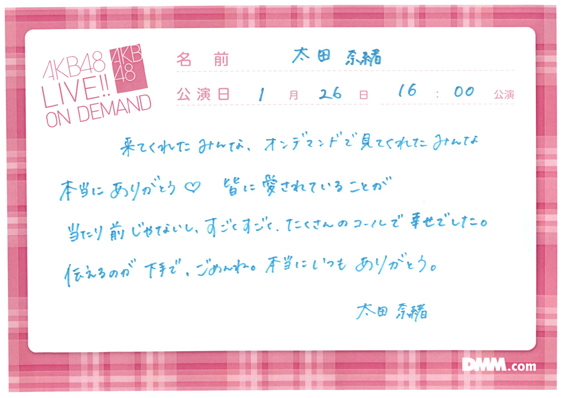 AKB48
LIVE!!
ON DEMAND
AKB
48
名前 太田 奈緒
公演日 1月26日 16:00公演
来てくれたみんな、オンデマンドで見てくれたみんな
本当にありがとう♡ 皆に愛されていることが
当たり前じゃないし、すごくすごく、たくさんのコールで幸せでした。
伝えるのが下手で、ごめんね。本当にいつもありがとう。
太田 奈緒
DMM.com